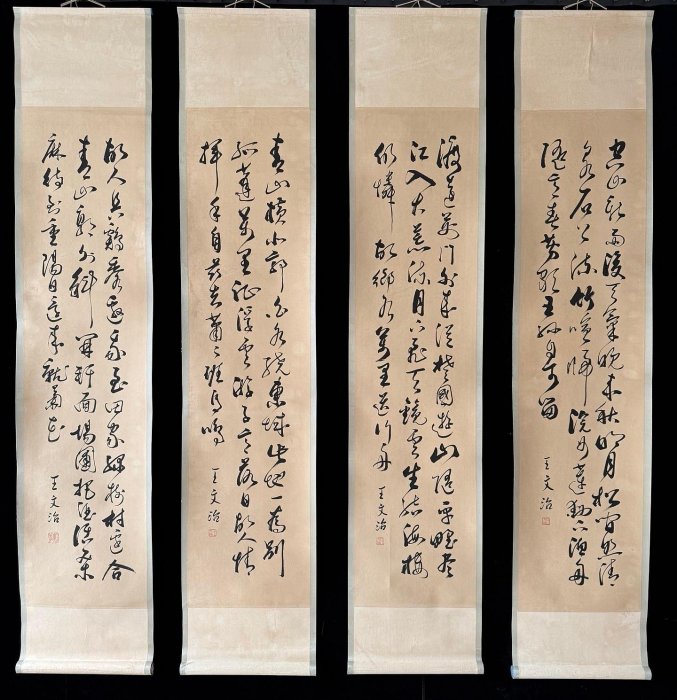 空山新雨後天氣晚來秋明月松間照清
泉石上流竹喧歸浣女蓮動下漁舟
隨意春芳歇王孫自可留
王文治
渡遠荊門外來從楚國遊山隨平野盡
江入大荒流月下飛天鏡雲生結海樓
仍憐故鄉水萬里送行舟
王文治
青山橫北郭白水繞東城此地一為別
孤蓬萬里征浮雲游子意落日故人情
揮手自茲去蕭〻班馬鳴
王文治
故人具雞黍邀我至田家綠樹村邊合
青山郭外斜開軒面場圃把酒話桑
麻待到重陽日還來就菊花
王文治